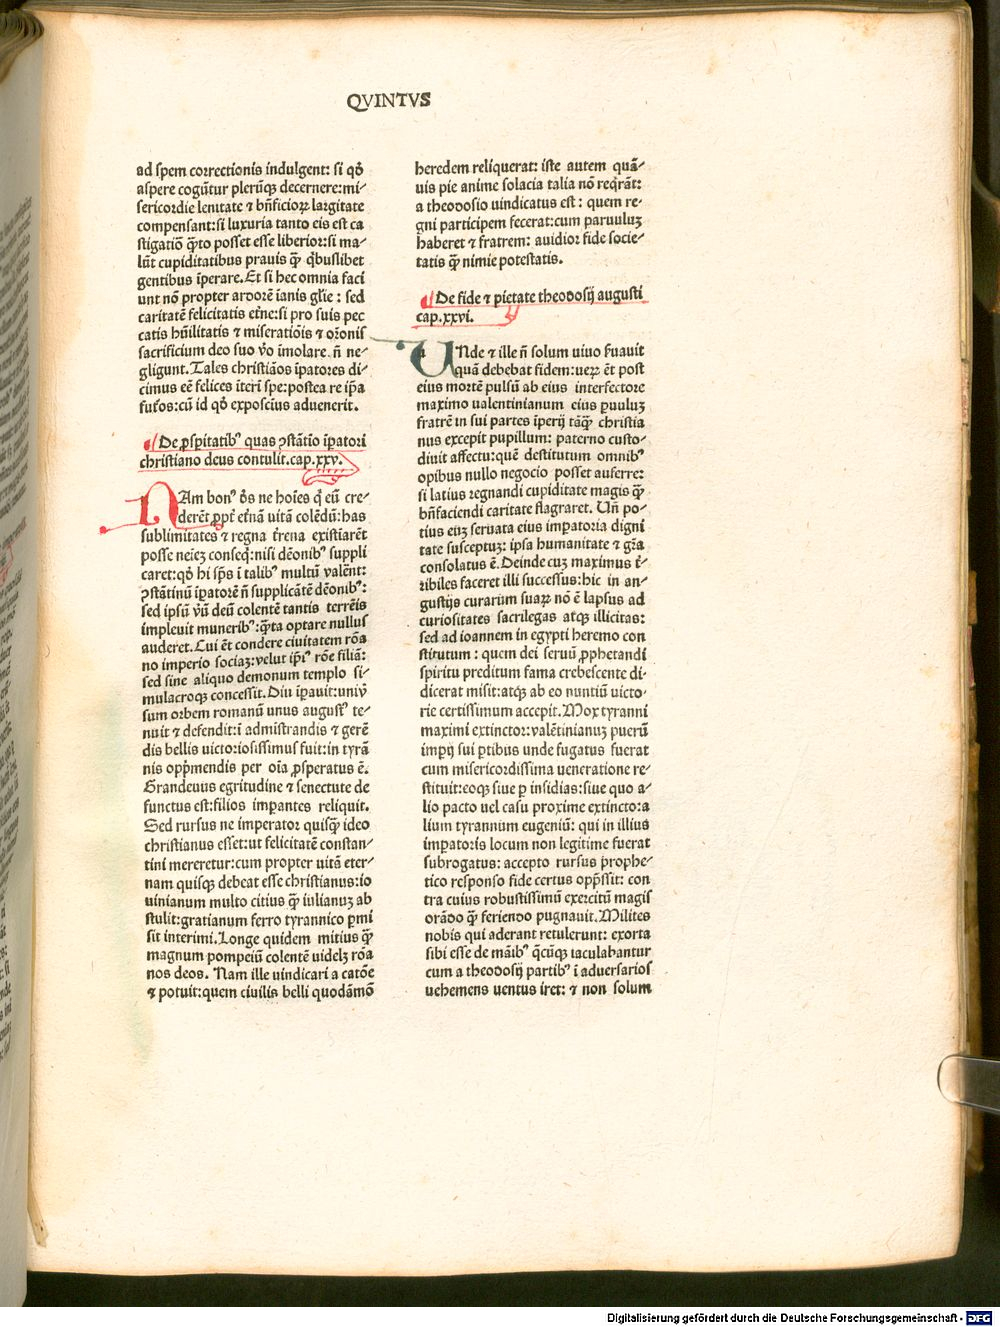 QVINTVS
ad spem correctionis indulgent: si qď
aspere cogūtur plerūqꝫ decernere: mi-
sericordie lenitate ⁊ bn̄ficioꝝ largitate
compensant: si luxuria tanto eis est ca
stigatiō q̄to posset esse liberior: si ma-
lūt cupiditatibus prauis q̄ꝫ qͥbuslibet
gentibus īperare. Et si hec omnia faci
unt nō propter ardorē īanis glīe : sed
caritatē felicitatis etn̄e: si pro suis pec
catis hūilitatis ⁊ miseratiōis ⁊ orōnis
sacrificium deo suo ṽo imolare n̄ ne-
gligunt. Tales christiāos īpatores di-
cimus eē felices iteri spe: postea re ip̄a
futͬos: cū id qď expoſcius aduenerit.
De ꝓspitatibꝰ quas ꝯstātīo īpatori
christiano deus contulit. cap. xxv.
NAm bonꝰ ďs ne hoīes q̇ eū cre-
derēt ꝓpt̄ et̄nā uitā colēdū: has
sublimitates ⁊ regna t̄rena existīarēt
posse neīeꝫ conseq̇: nisi dēonibꝰ suppli
caret: qď hi sp̄s ī talibꝰ multū valēnt:
ꝯstātinū īpatorē n̄ supplicātē dēonibꝰ:
sed ipsū ṽū deū colentē tantis terrēis
impleuit muneribꝰ: q̄ta optare nullus
auderet. Cui ēt condere ciuitatem rōa
no imperio sociaꝫ: velut ip̄i rōe filiā:
sed sine aliquo demonum templo si-
mulacroqꝫ concessit. Diu īpauit: uniṽ
sum orbem romanū unus augustꝰ te-
nuit ⁊ defendit: ī admistrandis ⁊ gerē
dis bellis uictoriosissimus fuit: in tyrā
nis opp̄mendis per oīa ꝓsperatus ē.
Grandeuus egritudine ⁊ senectute de
functus est: filios imꝑantes reliquit.
Sed rursus ne imperator quisq̄ꝫ ideo
christianus esset: ut felicitatē constan-
tini mereretur: cum propter uitā eter-
nam quisqꝫ debeat esse christianus: io
uinianum multo citius q̄ꝫ iulianuꝫ ab
stulit: gratianum ferro tyrannico ꝑmi
sit interimi. Longe quidem mitius q̄ꝫ
magnum pompeiū colentē uidelꝫ rōa
nos deos. Nam ille uindicari a catōe
ꝗ potuit: quem ciuilis belli quodāmō
heredem reliquerat: iste autem quā-
uis pie anime solacia talia nō reqͥrāt:
a theodosio uindicatus est : quem re-
gni participem fecerat: cum paruuluꝫ
haberet ⁊ fratrem: auidior fide socie-
tatis q̄ꝫ nimie potestatis.
De fide ⁊ pietate theodosij augusti
cap. xxvi.
UNde ⁊ ille n̄ solum uiuo s̄uauit
quā debebat fidem: ueꝝ ēt post
eius mortē pulsū ab eius interfectore
maximo ualentinianum eius ꝑuuluꝫ
fratrē in sui partes īperij tāq̄ꝫ christia
nus excepit pupillum: paterno custo-
diuit affectu: quē destitutum omnibꝰ
opibus nullo negocio posset auferre:
si latius regnandi cupiditate magis q̄ꝫ
bn̄faciendi caritate flagraret. Un̄ po-
tius eiꝫ seruata eius imꝑatoria digni
tate susceptuꝫ: ipsa humanitate ⁊ gr̄a
consolatus ē. Deinde cuꝫ maximus t̄-
ribiles faceret illi successus: hic in an-
gustijs curarum suaꝝ nō ē lapsus ad
curiositates sacrilegas atqꝫ illicitas:
sed ad ioannem in egypti heremo con
stitutum : quem dei seruū ꝓphetandi
spiritu preditum fama crebescente di-
dicerat misit: atqꝫ ab eo nuntiū uicto-
rie certissimum accepit. Mox tyranni
maximi extinctor: valētinianuꝫ puerū
impij sui ꝑtibus unde fugatus fuerat
cum misericordissima ueneratione re-
stituit: eoqꝫ siue ꝑ insidias: siue quo a-
lio pacto uel casu proxime extincto: a
lium tyrannum eugeniū: qui in illius
imꝑatoris locum non legitime fuerat
subrogatus: accepto rursus prophe-
tico responso fide certus opp̄ssit: con
tra cuius robustissimū exercitū magis
orādo q̄ꝫ feriendo pugnauit. Milites
nobis qui aderant retulerunt: exorta
sibi esse de māibꝰ q̄cūqꝫ iaculabantur
cum a theodosij partibꝰ ī aduersarios
uehemens uentus iret: ⁊ non solum
Digitalisierung gefördert durch die Deutsche Forschungsgemeinschaft - DFG